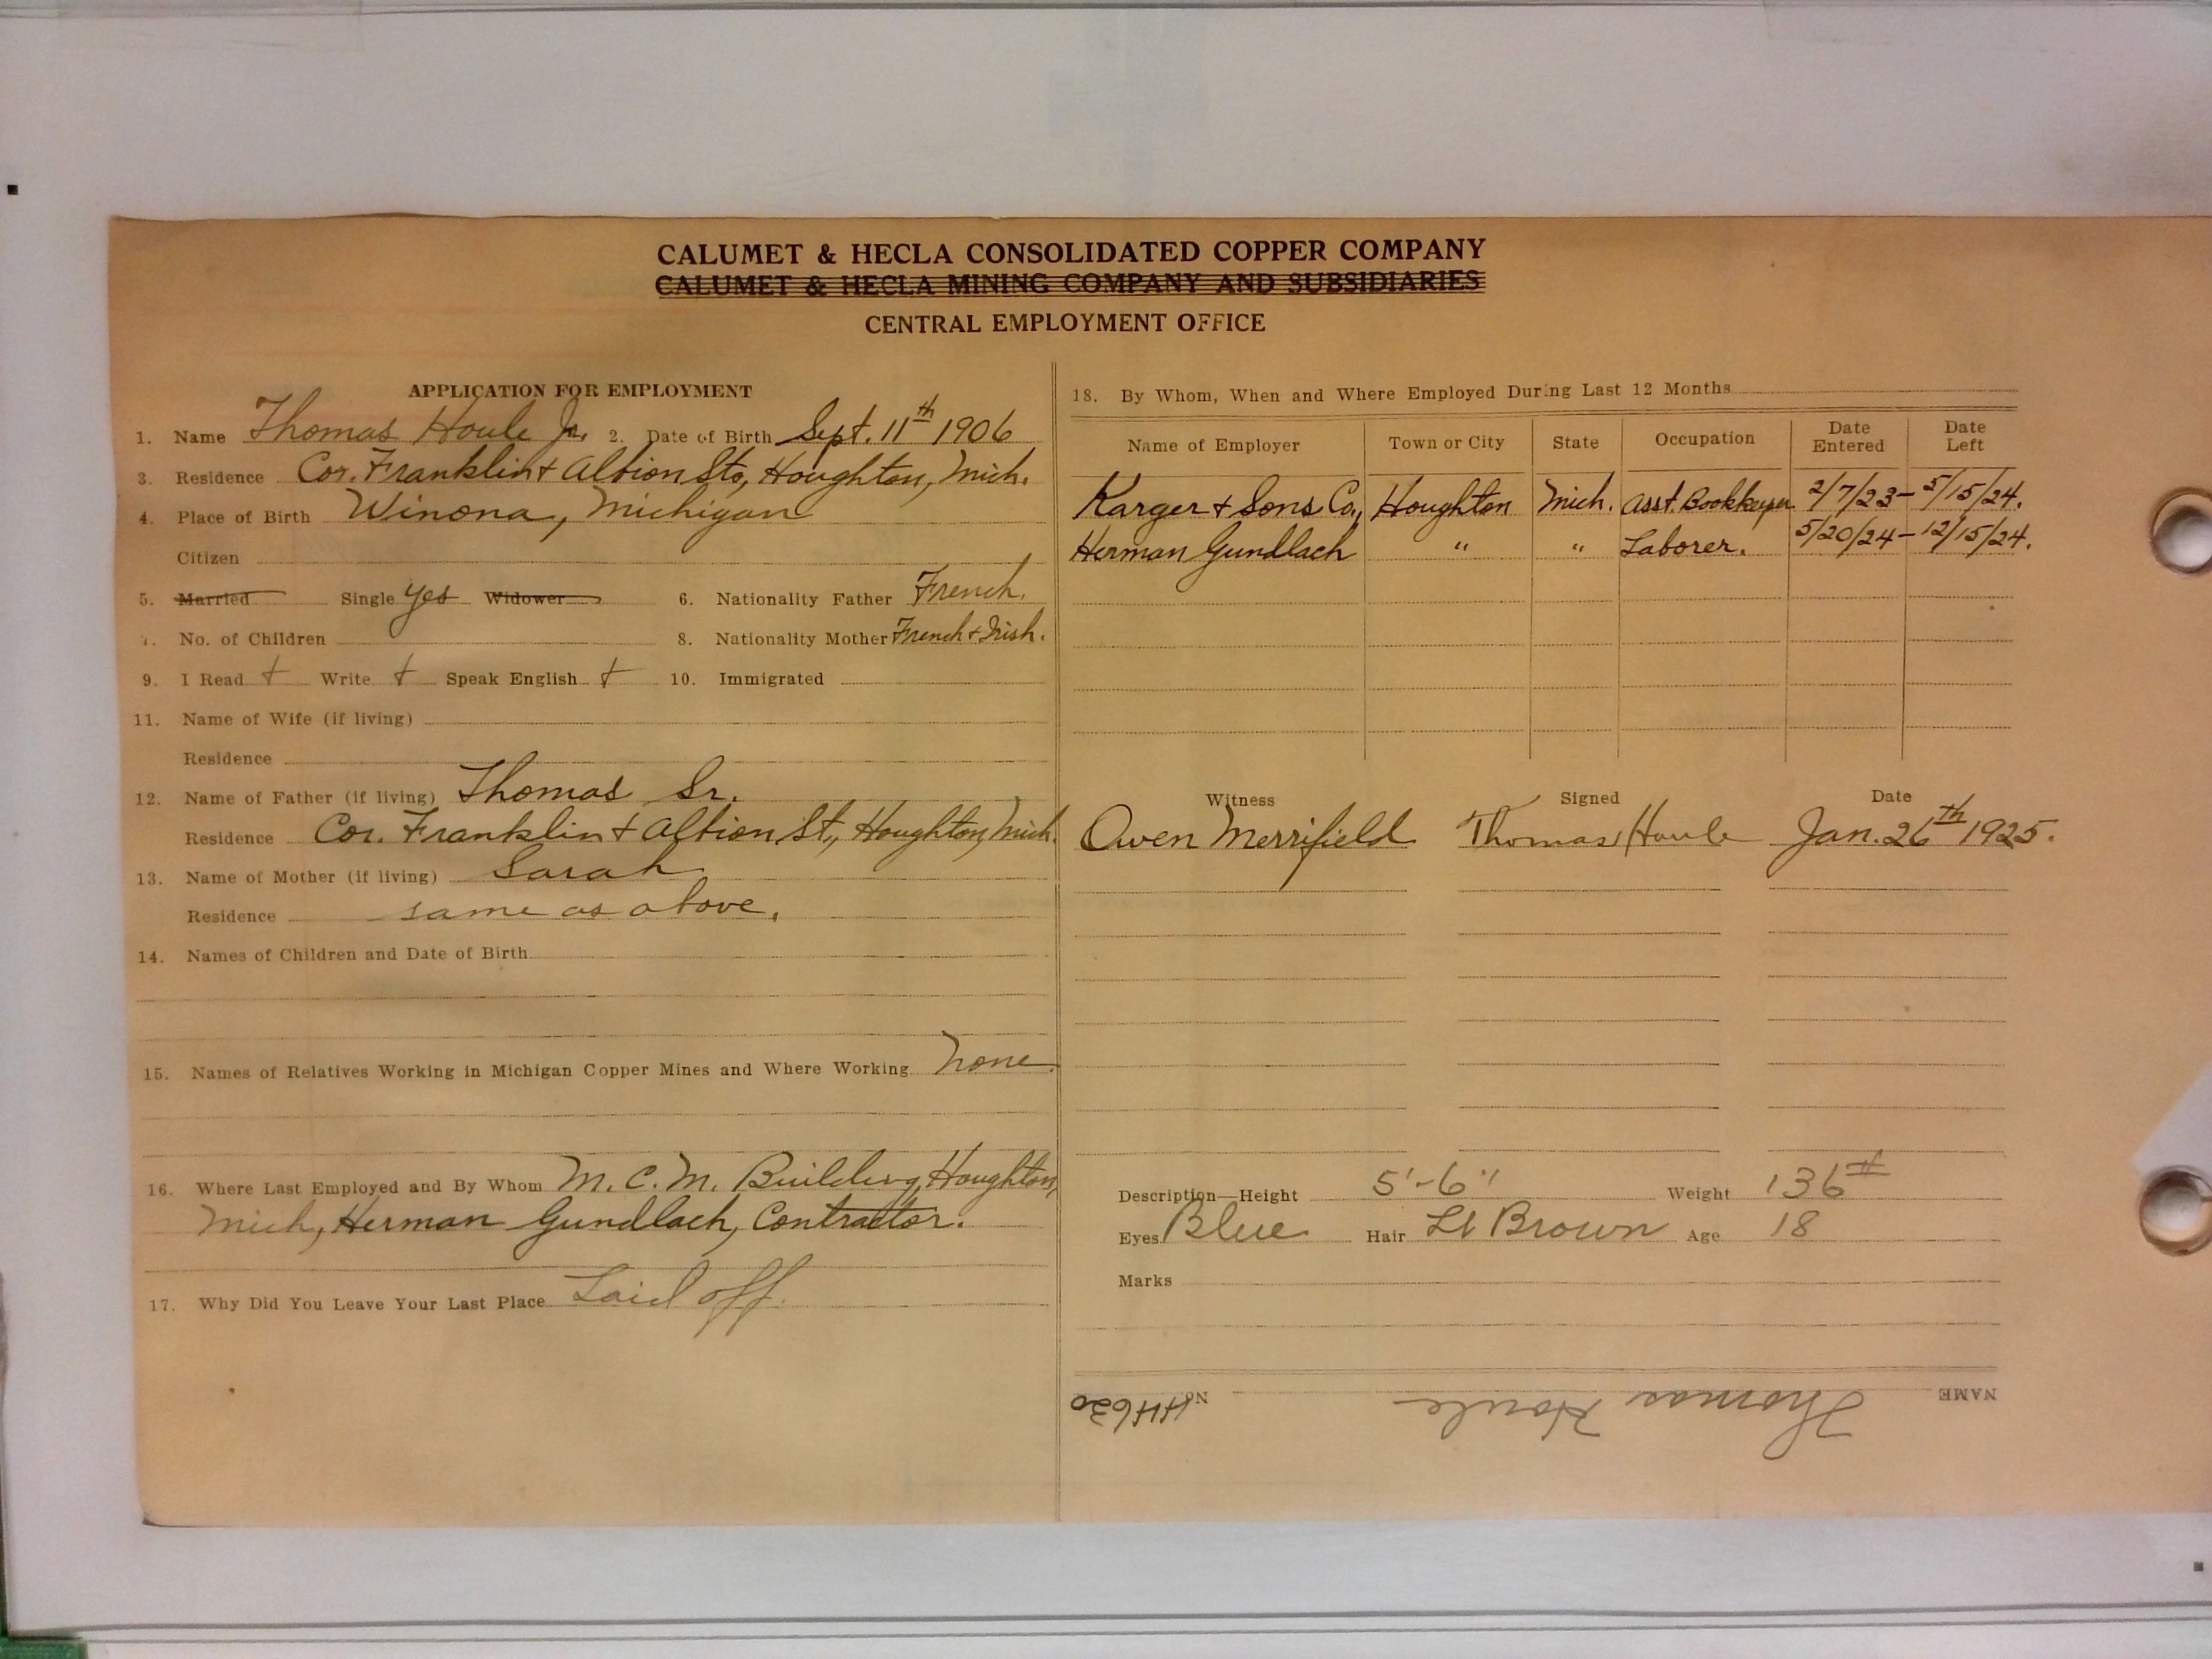 CALUMET & HECLA CONSOLIDATED COPPER COMPANY
CALUMET & HECLA MINING COMPANY AND SUBSIDIARIES
CENTRAL EMPLOYMENT OFFICE
APPLICATION FOR EMPLOYMENT
1. Name Thomas Houle Jr. 2. Date of Birth Sept. 11th 1906
3. Residence Cor. Franklin + Albion Sts, Houghton, Mich.
4. Place of Birth Winona, Michigan
Citizen
5. Married Single Yes Widower 6. Nationality Father French.
7. No. of Children 8. Nationality Mother French + Irish.
9. I Read + Write + Speak English + 10. Immigrated
11. Name of Wife (if living)
Residence
12. Name of Father (if living) Thomas Sr.
Residence Cor. Franklin + Albion St., Houghton, Mich.
13. Name of Mother (if living) Sarah
Residence same as above.
14. Names of Children and Date of Birth
15. Names of Relatives Working in Michigan Copper Mines and Where Working none
16. Where Last Employed and By Whom M. C. M. Building, Houghton,
Mich, Herman Gundlach, Contractor.
17. Why Did You Leave Your Last Place Laid off.
18. By Whom, When and Where Employed During Last 12 Months
Name of Employer Town or City State Occupation Date Entered Date Left
Karger + Sons Co., Houghton Mich. Asst. Bookkeeper 2/7/23 - 5/15/24.
Herman Gundlach " " Laborer. 5/20/24 - 12/15/24.
Witness Signed Date
Owen Merrifield Thomas Houle Jan. 26th 1925.
Description—Height 5'-6" Weight 136#
Eyes Blue Hair Lt Brown Age 18
Marks
NAME Thomas Houle No. HH630